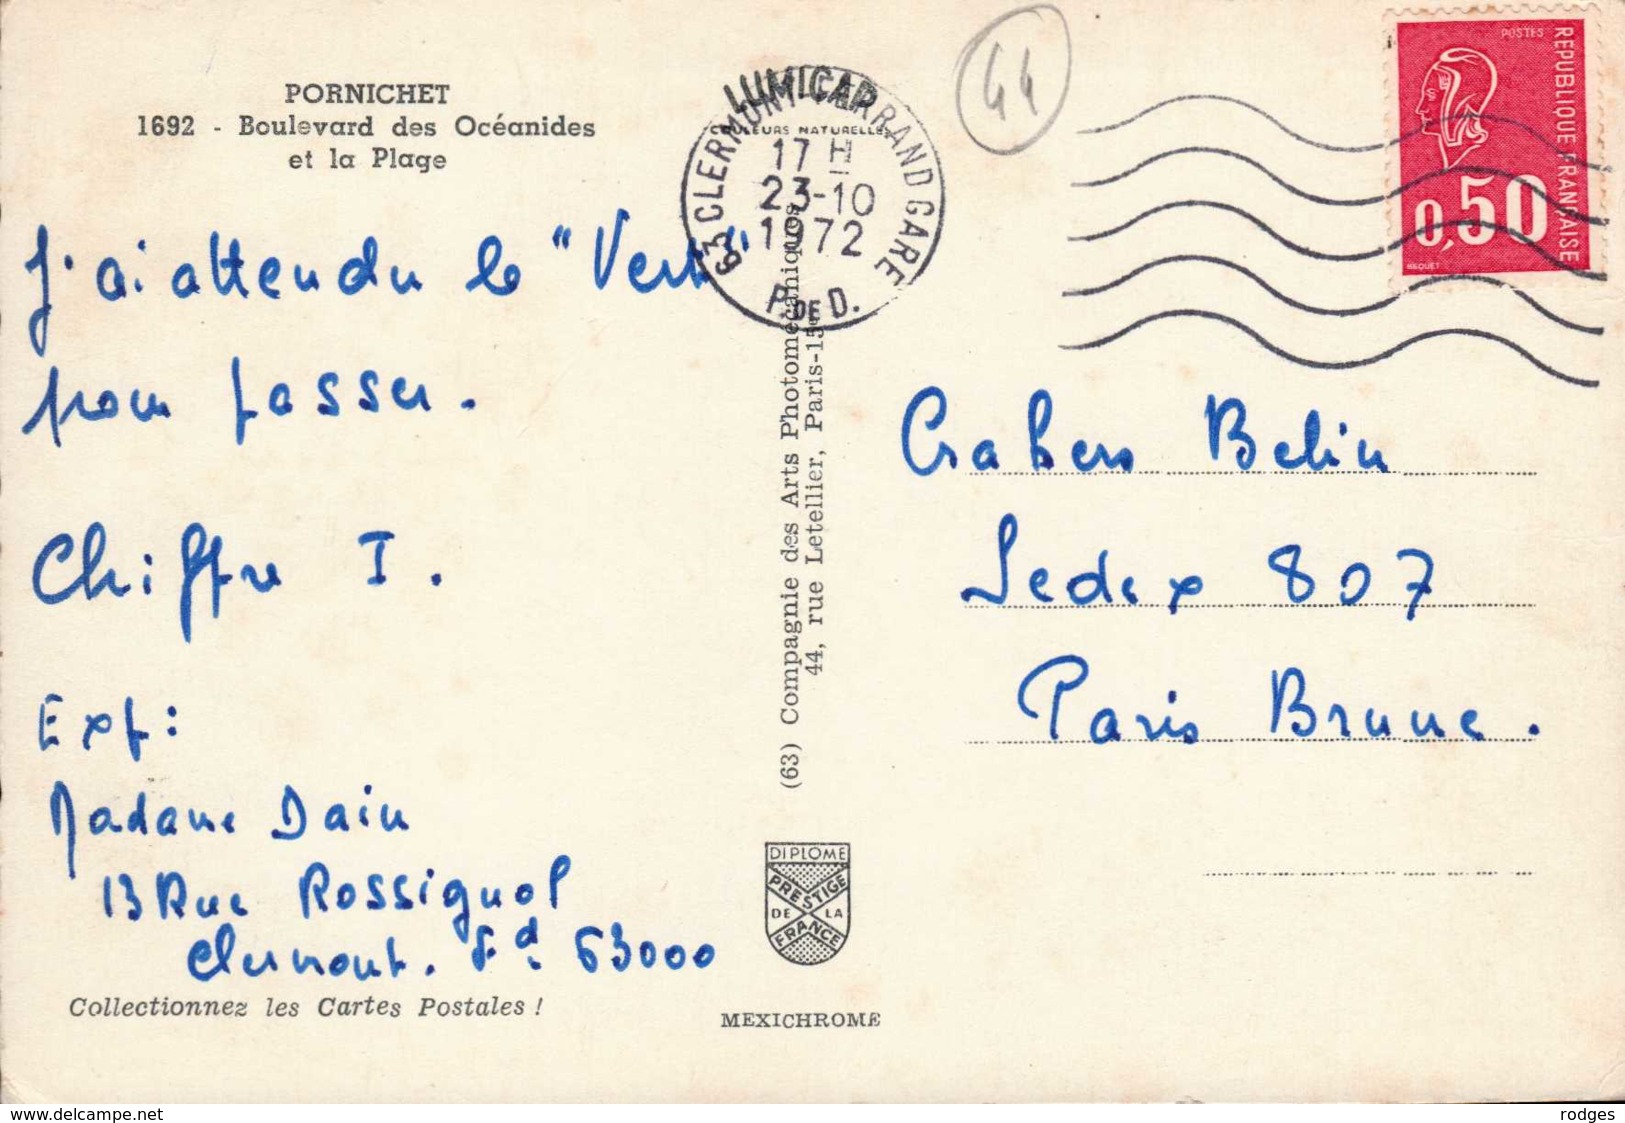 PORNICHET
1692 - Boulevard des Océanides
et la Plage
J'ai attendu le "Vert"
pour passer.
Chiffre I.
Exp:
Madame Dain
13 Rue Rossignol
Clermont. Fd. 63000
Collectionnez les Cartes Postales !
LUMICAP
COULEURS NATURELLES
63 CLERMONT-FERRAND GARE
17 H
23-10
1972
P. DE D.
(63) Compagnie des Arts Photomécaniques
44, rue Letellier, Paris-15e
DIPLOME
PRESTIGE
DE LA
FRANCE
MEXICHROME
44
POSTES
REPUBLIQUE FRANÇAISE
0,50
BEQUET
Crakers Belin
Sedex 807
Paris Brune.
www.delcampe.net
rodges